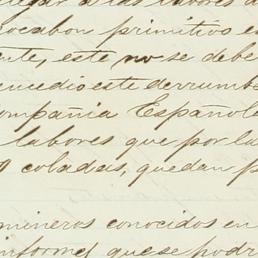 llegar a las labores a
ocabon primitivo e
ente, este no se debe
sucedio este derrumb
ompañia Española
labores que por la
y coladas, quedan p
mineros conocidos en
informes que se podr